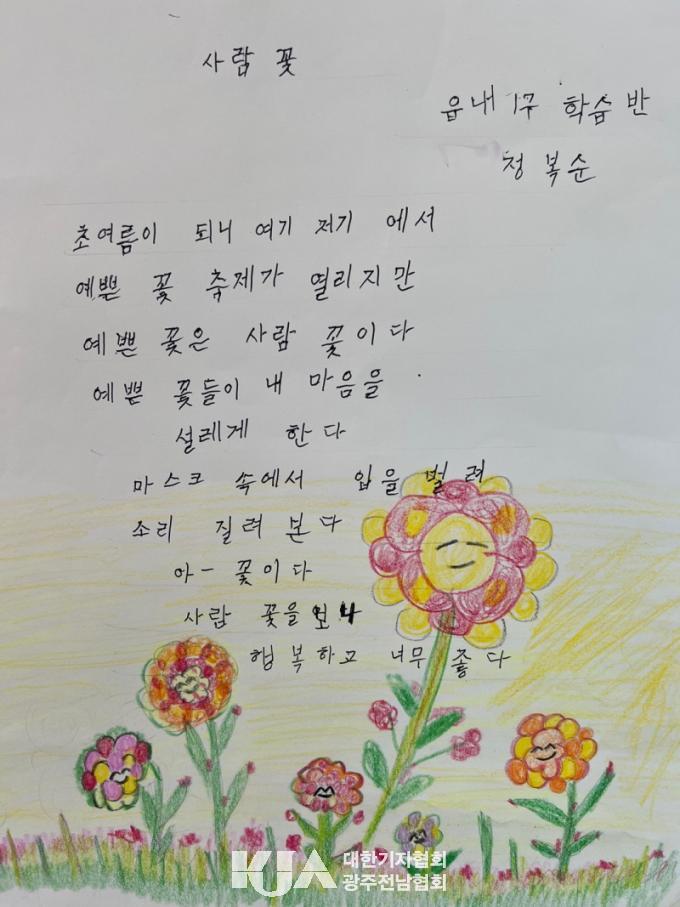 사람 꽃
읍내 1구 학습반
정복순
초여름이 되니 여기 저기 에서
예쁜 꽃 축제가 열리지만
예쁜 꽃은 사람 꽃이다
예쁜 꽃들이 내 마음을
설레게 한다
마스크 속에서 입을 벌려
소리 질려 본다
아- 꽃이다
사람 꽃을 보니
행복하고 너무 좋다
KJA 대한기자협회
광주전남협회